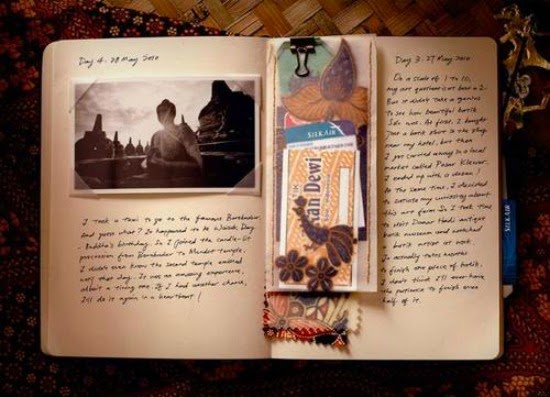 Day 4. 28 May 2010
I took a taxi to go to the famous Borobudur.
And guess what? It happened to be Waisak Day
- Buddha's birthday. So I joined the candle-lit
procession from Borobudur to Mendut Temple.
I didn't even know the second temple existed
until that day. It was an amazing experience,
albeit a tiring one. If I had another chance,
I'll do it again in a heartbeat!
SILKAIR
an Dewi
Day 3. 27 May 2010
On a scale of 1 to 10,
my art quotient is at best a 2.
But it didn't take a genius
to see how beautiful batik
Solo was. At first, I bought
just a batik shirt in the shop
near my hotel, but then
I got carried away in a local
market called Pasar Klewer.
I ended up with a dozen!
At the same time, I decided
to satisfy my curiosity about
this art form. So I took time
to visit Danar Hadi antique
batik museum and watched
batik artist at work.
It actually takes months
to finish one piece of batik.
I don't think I'll ever have
the patience to finish even
half of it.
SILKAIR